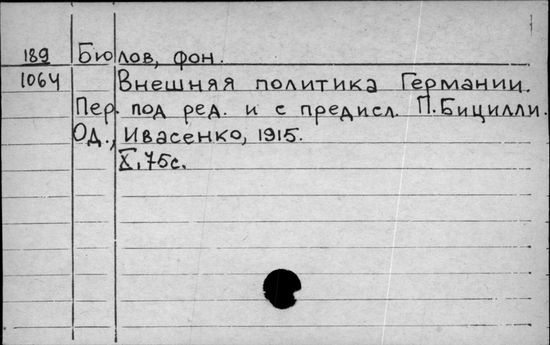 189 Бюлов, фон.
1064 Внешняя политика Германии.
Пер. под ред. и с предисл. П. Бицилли.
Од., Ивасенко, 1915.
X, 75с.